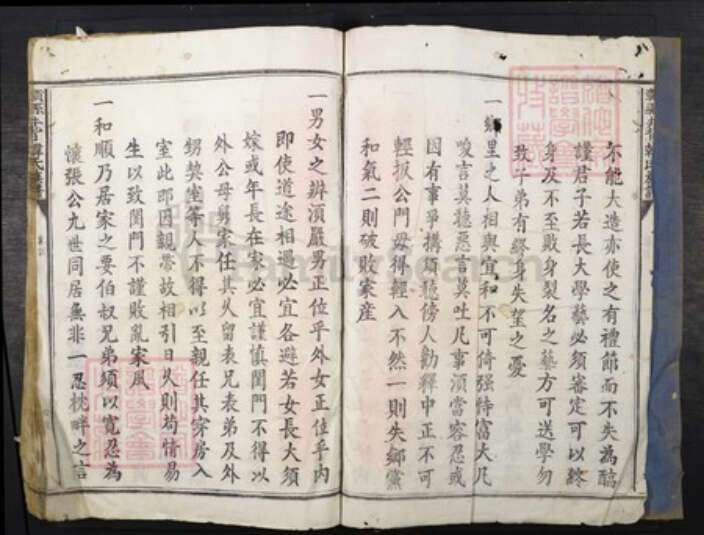 不能大造亦使之有禮節而不失為醇
謹君子若長大學藝必須審定可以終
身及不至敗身裂名之藝方可送學勿
致子弟有終身失望之憂
一鄉里之人相與宜和不可倚強恃富大凡
唆言莫聽惡言莫吐凡事須當容忍或
因有事爭搆須聽傍人勸釋中正不可
輕扳公門毋得輕入不然一則失鄉黨
和氣二則破敗家産
一男女之辨須嚴男正位乎外女正位乎內
即使道途相遇必宜各避若女長大須
嫁或年長在家必宜謹慎閨門不得以
外公母舅家任其久留表兄表弟及外
甥契室等人不得以至親任其穿房入
室此即因親帶故相引日久則苟情易
生以致閨門不謹敗亂家風
一和順乃居家之要伯叔兄弟須以寬忍為
懷張公九世同居無非一忍枕畔之言
FamilySearch